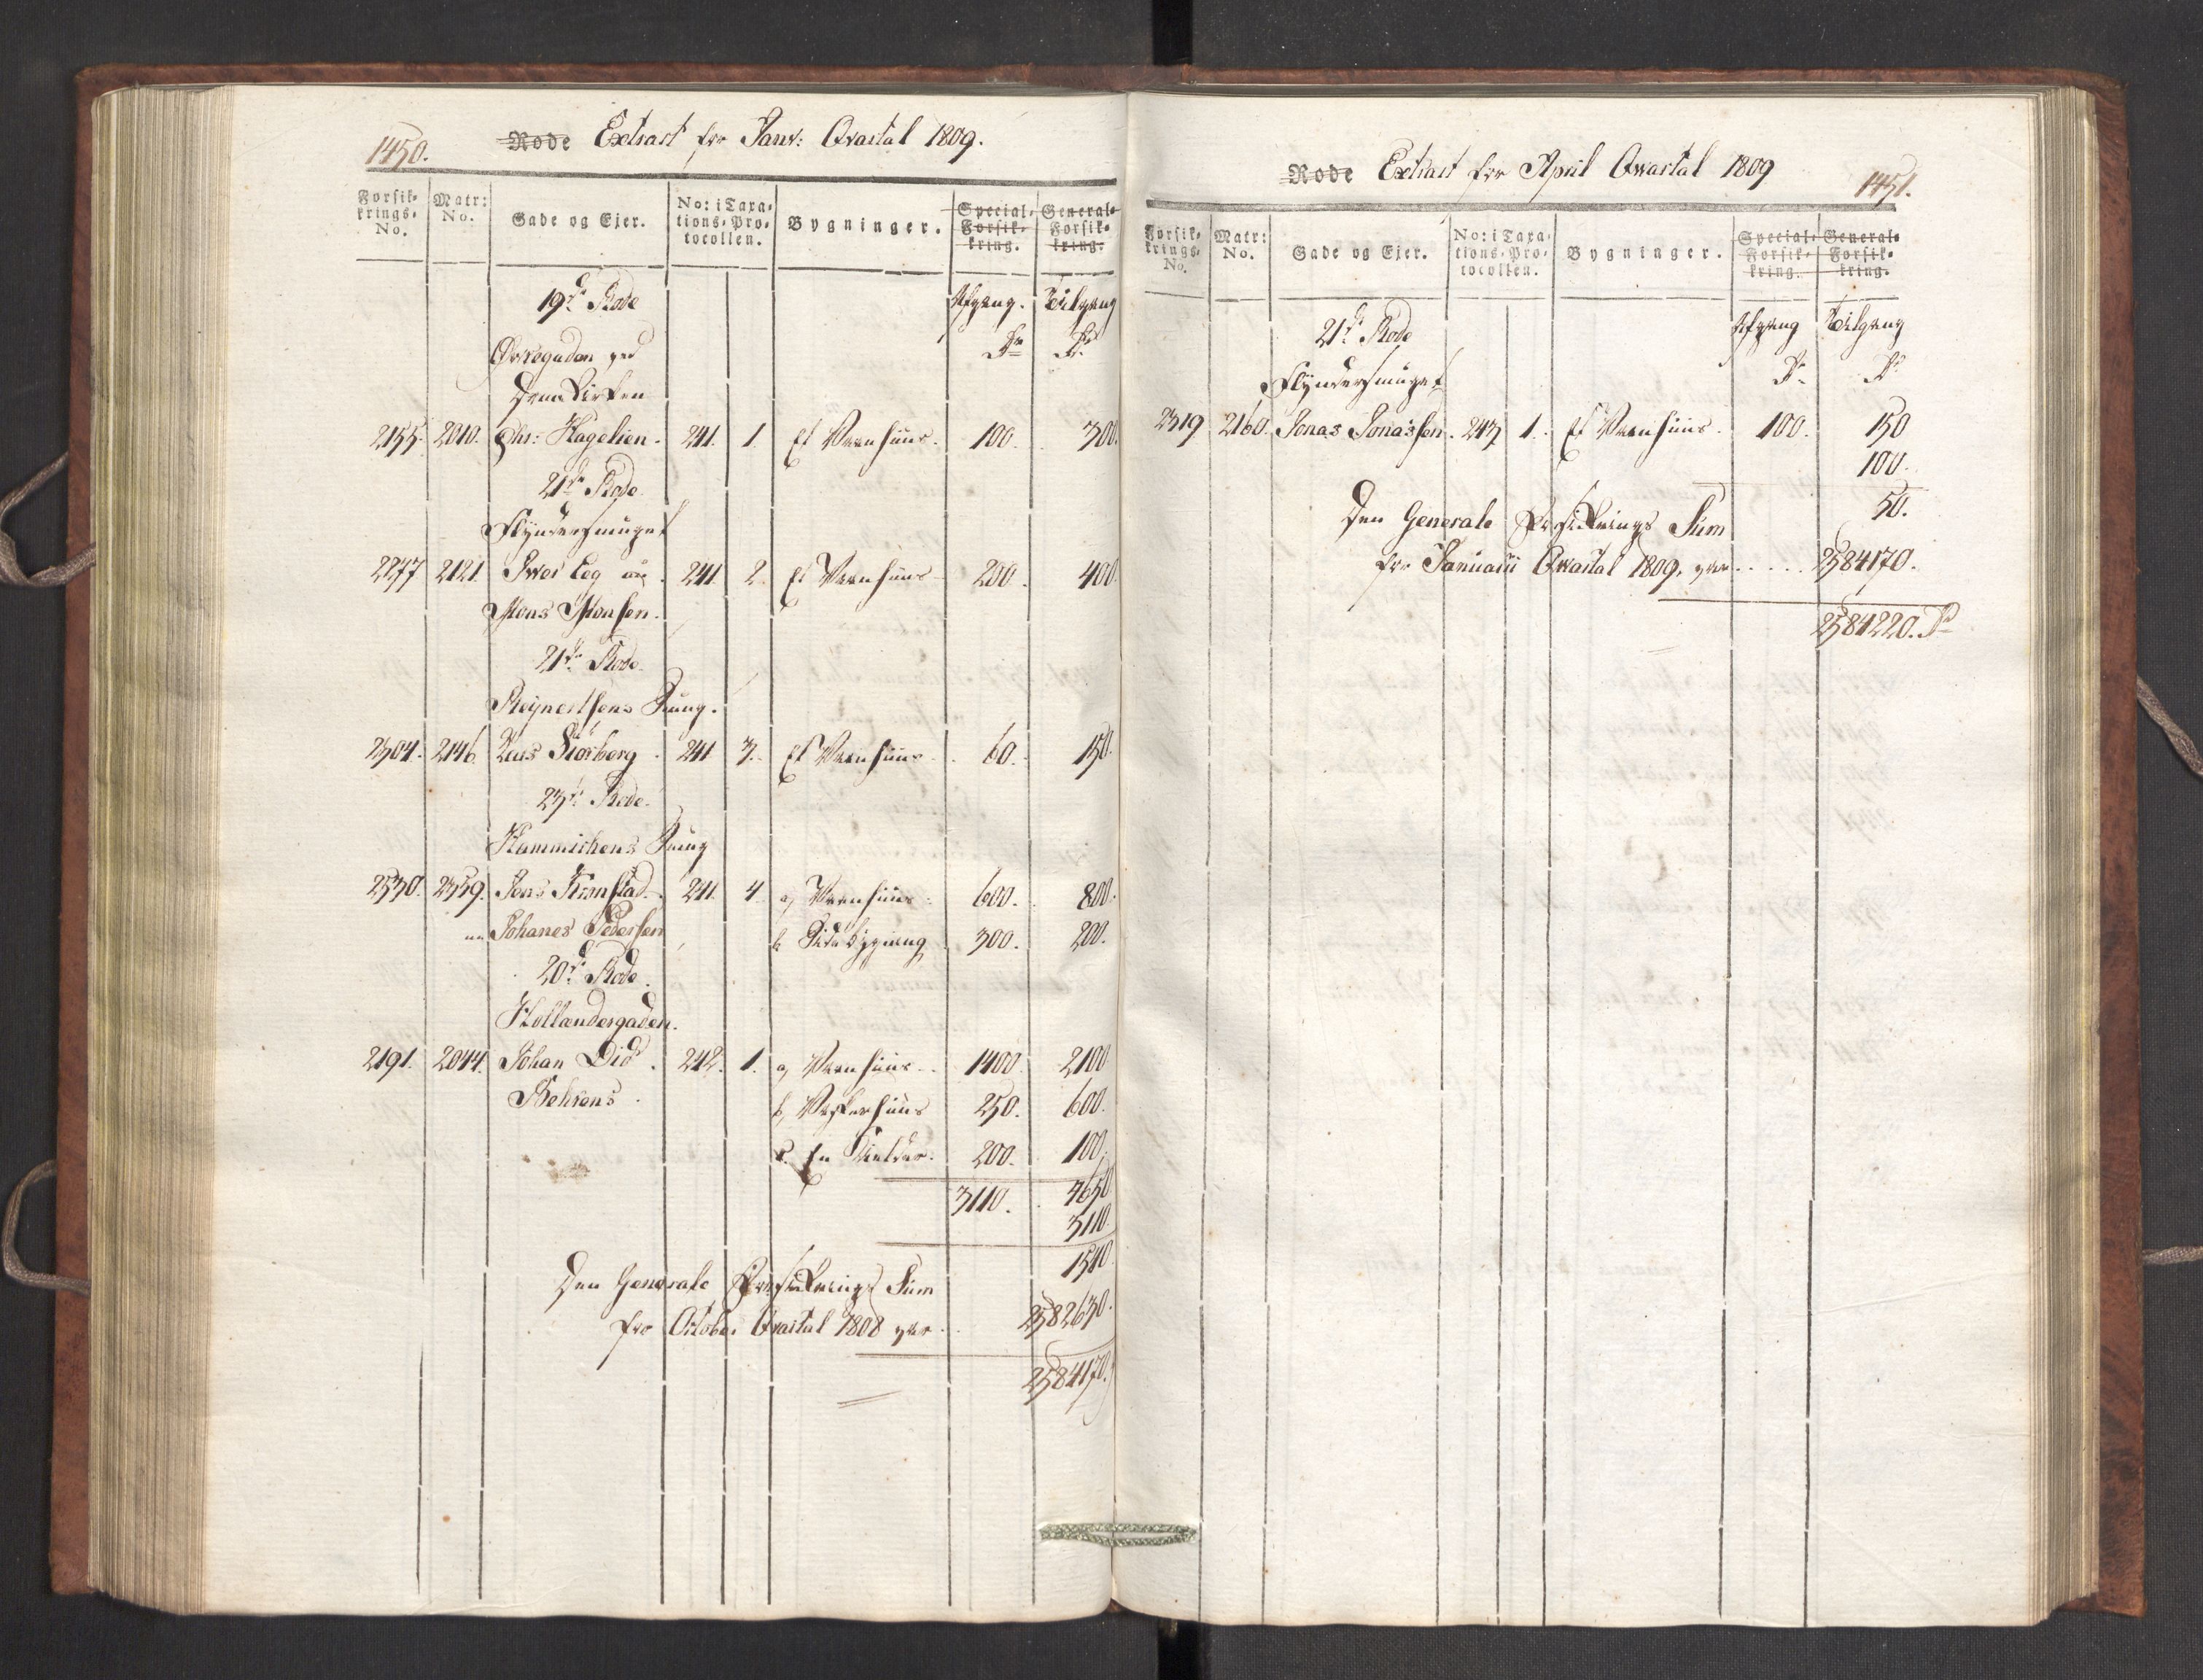 1450.
Rode Extract for Janv: Qvartal 1809.
Forsikrings-No. Matr: No. Gade og Ejer. No: i Taxations-Protocollen. Bygninger. Special-Forsikring. General-Forsikring.
19de Rode Afgang. Tilgang
Øvregaden ved Rd Rd
Kirken
2155. 2010. Chr: Hagelien. 241. 1. Et Vaanhuus. 100. 300.
21de Rode
Flyndersmuget
2277 2121. Iver Eeg og 241 2. Et Vaanhuus 200. 400
Mons Monsen.
21de Rode
Reijnertsens Smug.
2304. 2146. 241 3. Et Vaanhuus 60. 150.
23de Rode.
Smug
2530. 2359. 241. 4. a, Vaanhuus 600. 800.
Johanes Pedersen b Sidebygning 300. 200.
20de Rode.
Hollændergaden.
2191. 2044. Johan Did 242. 1. a, Vaanhuus 1400. 2100
Behrens. b, 250. 600.
c. En Kielder. 200. 100.
3110. 4650
3110.
1540
Den Generale Forsikrings Sum
for October Qvartal 1808 var 2582630.
2584170.
Rode Extract for April Qvartal 1809
1451.
Forsikrings-No. Matr: No. Gade og Ejer. No: i Taxations-Protocollen. Bygninger. Special-Forsikring. General-Forsikring.
21de Rode Afgang Tilgang
Flyndersmuget Rd Rd
2319 2160. Jonas Jonassen. 243 1. Et Vaanhuus 100. 150
100.
50.
Den Generale Forsikrings Sum
for Januarii Qvartal 1809, var..... 2584170.
2584220. Rd